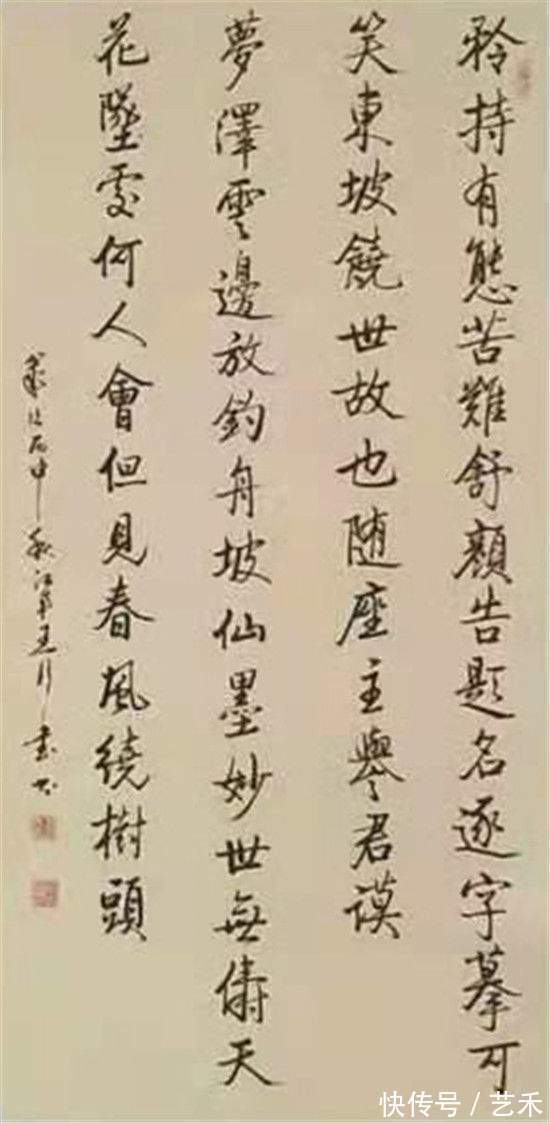 矜持有態苦難舒顏告題名逐字摹可
笑東坡饒世故也随座主譽君謨
夢澤雲邊放釣舟坡仙墨妙世無儔天
花墜處何人會但見春風繞樹頭
丙申秋
書
快传号/艺禾